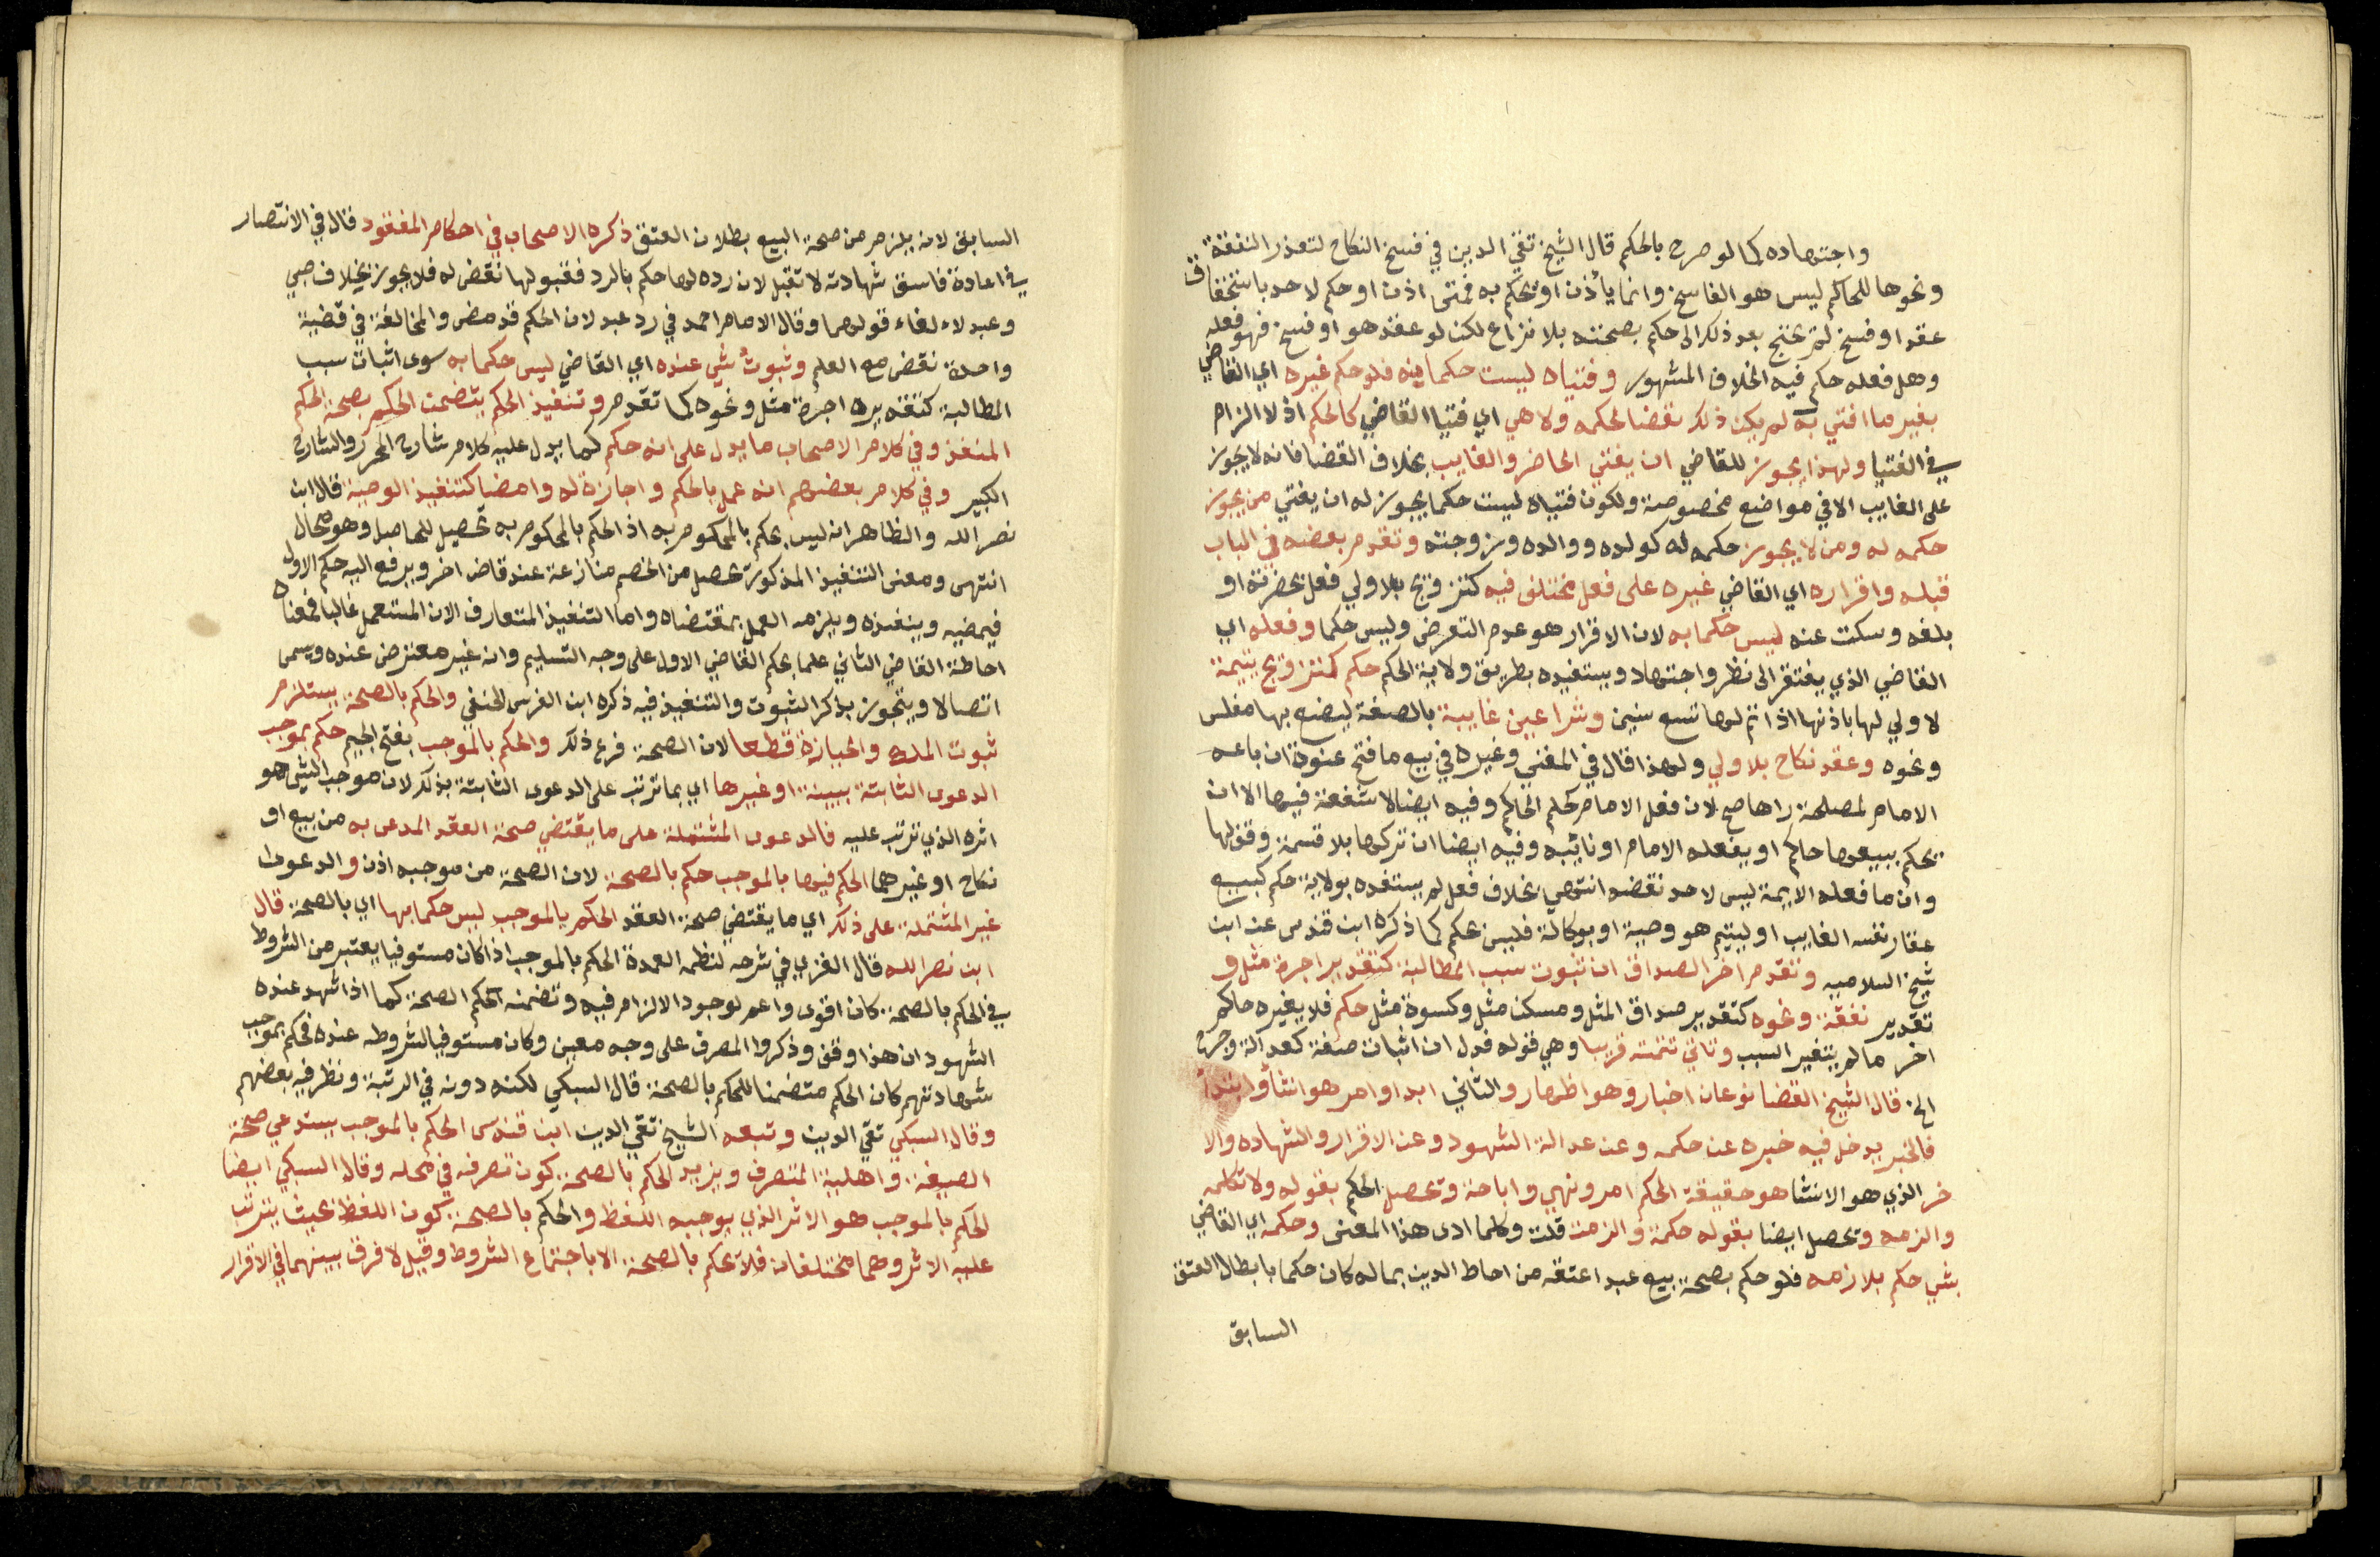 واجتهاده كما لو صرح بالحكم قال الشيخ تقي الدين في فسخ النكاح لتعذر النفقة
ونحوها للحاكم ليس هو الفاسخ وانما يأذن او يحكم به فمتى اذن او حكم لاحد باستحقاق
عقد او فسخ لم يحتج بعد ذلك الى حكم بصحته بلا نزاع لكن لو عقد هو او فسخ فهو فعله
وهل فعله حكم فيه الخلاف المشهور وفتياه ليست حكما منه فلو حكم غيره اي القاضي
بغير ما افتي به لم يكن ذلك نقضا لحكمه ولا هي اي فتيا القاضي كالحكم اذ لا الزام
في الفتيا ولهذا يجوز للقاضي ان يفتي الحاضر والغايب بخلاف القضا فانه لا يجوز
على الغايب الا في مواضع مخصوصة ولكون فتياه ليست حكما يجوز له ان يفتي من يجوز
حكمه له ومن لا يجوز حكمه له كولده ووالده وزوجته وتقدم بعضه في الباب
قبله واقراره اي القاضي غيره على فعل مختلف فيه كتزويج بلا ولي فعل بحضرته او
بلغه وسكت عنه ليس حكما به لان الاقرار هو عدم التعرض وليس حكما وفعله اي
القاضي الذي يفتقر الى نظر واجتهاد ويستفيده بطريق ولاية الحكم حكم كتزويج يتيمة
لا ولي لها باذنها اذا تم لها تسع سنين وشرا عين غايبة بالصفة ليضه بها مفلس
ونحوه وعقد نكاح بلا ولي ولهذا قال في المغني وغيره في بيع ما فتح عنوة ان باعه
الامام لمصلحة راها صح لان فعل الامام كحكم الحاكم وفيه ايضا لا شفعة فيها الا ان
يحكم ببيعها حاكم او يفعله الامام او نائبه وفيه ايضا ان تركها بلا قسمة وقف لها
وان ما فعله الايمة ليس لاحد نقضه انتهى بخلاف فعل لم يستفده بولاية حكم كبيع
عقار نفسه الغايب او ليتيم هو وصية او بوكالة فليس بحكم كما ذكره ابن قندس عن ابن
شيخ السلامية وتقدم اخر الصداق ان ثبوت سبب المطالبة كتقدير اجرة مثل و
تقدير نفقة ونحوه كتقدير صداق المثل ومسكن مثل وكسوة مثل حكم فلا يغيره حاكم
اخر ما لم يتغير السبب وتاتي تتمته قريبا وهي قوله فدل ان اثبات صفة كعدالة وجرح
الخ قال الشيخ القضا نوعان اخبار وهو اظهار والثاني ابدا وامر هو انشأ وابتدأ
فالخبر يدخل فيه خبره عن حكمه وعن عدالة الشهود وعن الاقرار والشهاده والا
خر الذي هو الانشا هو حقيقة الحكم امر ونهي واباحة وتحصيل الحكم بقوله ولا تكلمه
والزمه ويحصل ايضا بقوله حكمت والزمت قلت وكلما ادى هذا المعنى وحكمه اي القاضي
بشي حكم بلازمه فلو حكم بصحة بيع عبد اعتقه من احاط الدين بماله كان حكما بابطال العتق
السابق
السابق لانه يلزم من صحة البيع بطلان العتق ذكره الاصحاب في احكام المفقود قال في الانتصار
في اعادة فاسق شهادته لا تقبل لان رده لها حكم بالرد فقبولها نقض له فلا يجوز بخلاف صبي
وعبد لالغاء قولهما وقال الامام احمد في رد عبد لان الحكم قد مضى والمخالفة في قضية
واحدة نقض مع العلم وثبوت شي عنده اي القاضي ليس حكما به سوى اثبات سبب
المطالبة كتقديره اجرة مثل ونحوه كما تقدم وتنفيذ الحكم يتضمن الحكم بصحة الحكم
المنفذ وفي كلام الاصحاب ما يدل على انه حكم كما يدل عليه كلام شارح المحرر والشارح
الكبير وفي كلام بعضهم انه عمل بالحكم واجازة له وامضا كتنفيذ الوصية قال ابن
نصر الله والظاهر انه ليس بحكم بالمحكوم به اذ الحكم بالمحكوم به تحصيل للحاصل وهو محال
انتهى ومعنى التنفيذ المذكور يحصل من الخصم منازعة عند قاض اخر ويرفع اليه حكم الاول
فيمضيه وينفذه ويلزم العمل بمقتضاه واما التنفيذ المتعارف الان المستعمل غالبا فمعناه
احاطة القاضي الثاني علما بحكم القاضي الاول على وجه التسليم وانه غير معترض عنده ويسمى
اتصالا ويتجوز بذكر الثبوت والتنفيذ فيه ذكره ابن الغرس الحنفي والحكم بالصحة يستلزم
ثبوت الملك والحيازة قطعا لان الصحة فرع ذلك والحكم بالموجب بفتح الجيم حكم بموجب
الدعوى الثابتة ببينة او غيرها اي بما ترتب على الدعوى الثابتة بذلك لان موجب الشي هو
اثره الذي ترتب عليه فالدعوى المشتملة على ما يقتضي صحة العقد المدعى به من بيع او
نكاح او غيرهما الحكم فيها بالموجب حكم بالصحة لان الصحة من موجبه اذن والدعوى
غير المشتملة على ذلك اي ما يقتضي صحة العقد الحكم بالموجب ليس حكما بها اي بالصحة قال
ابن نصر الله قال الغزي في شرحه لنظمه العمدة الحكم بالموجب اذا كان مستوفيا يعتبر من الشروط
في الحكم بالصحة كان اقوى واعم لوجود الالزام فيه وتضمنه الحكم الصحة كما اذا شهد عنده
الشهود ان هذا وقف وذكروا المصرف على وجه معين وكان مستوفيا لشروطه عنده فحكم بموجب
شهادتهم كان الحكم متضمنا للحكم بالصحة قال السبكي لكنه دونه في الرتبة ونظر فيه بعضهم
وقال السبكي تقي الدين وتبعه الشيخ تقي الدين ابن قندس الحكم بالموجب يستدعي صحة
الصيغة واهلية المتصرف ويزيد الحكم بالصحة كون تصرفه في محله وقال السبكي ايضا
الحكم بالموجب هو الاثر الذي يوجبه اللفظ والحكم بالصحة كون اللفظ بحيث يترتب
عليه الاثر وهما مختلفان فلا يحكم بالصحة الا باجتماع الشروط وقيل لا فرق بينهما في الاقرار